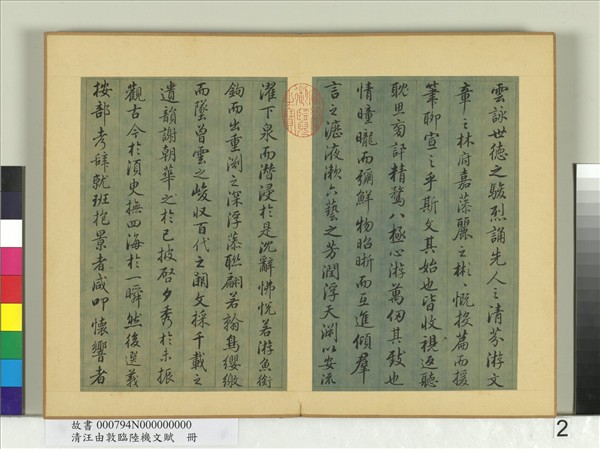 雲詠世德之駿烈誦先人之清芬游文
章之林府嘉藻麗之彬彬慨投篇而援
筆聊宣之乎斯文其始也皆收視返聽
耽思旁訊精騖八極心游萬仞其致也
情曈曨而彌鮮物昭晰而互進傾羣
言之瀝液漱六藝之芳潤浮天淵以安流
濯下泉而潛浸於是沈辭怫悅若游魚銜
鉤而出重淵之深浮藻聯翩若翰鳥纓繳
而墜曾雲之峻收百代之闕文採千載之
遺韻謝朝華之於已披啓夕秀於未振
觀古今於須臾撫四海於一瞬然後選義
按部考辭就班抱景者咸叩懷響者
故書 000794N000000000
清汪由敦臨陸機文賦 冊
2